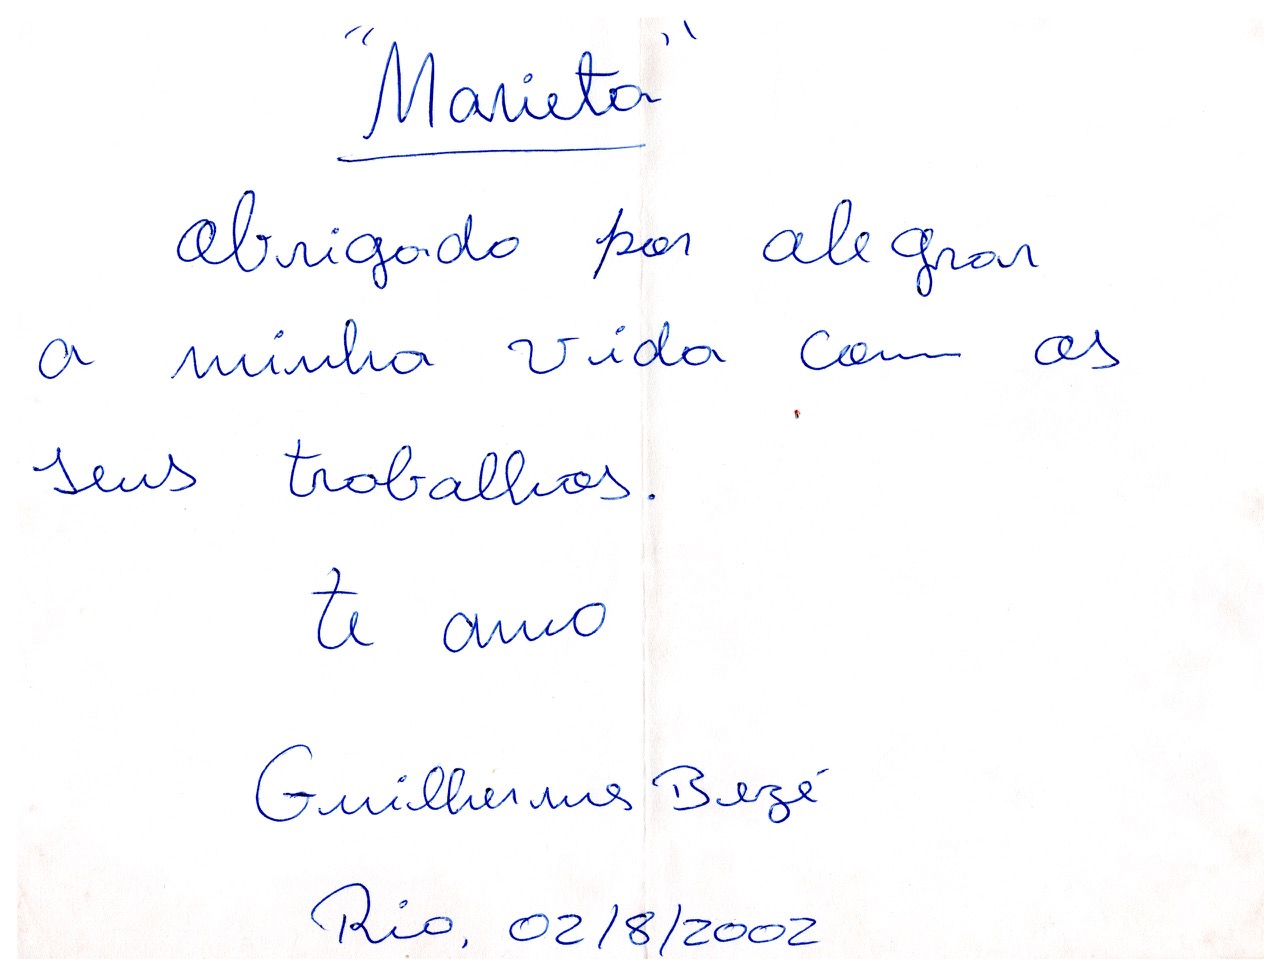 "Marieta"
obrigado por alegrar
a minha vida com os
seus trabalhos.
te amo
Guilherme Bezé
Rio, 02/8/2002